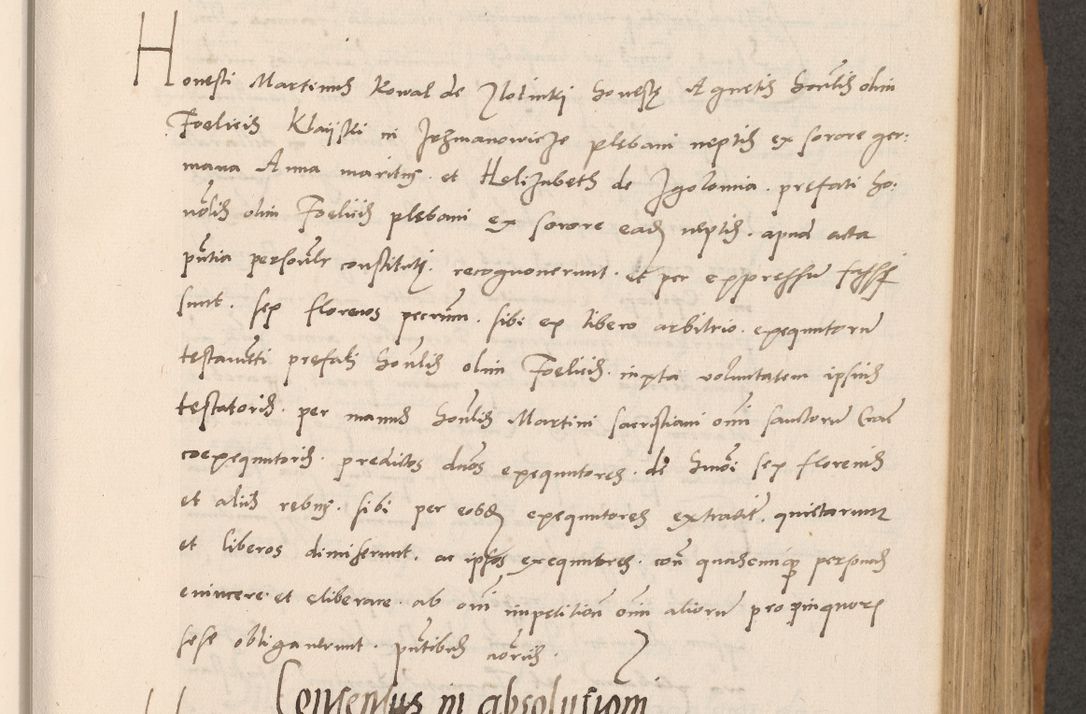 Honesti Martinus Kowal de Zlotniki honestę Agnetis honlis olim
Foelicis Klayski in Jrzmanowicze plebani neptis ex sorore ger:
mana Anna maritus. et Helizabeth de Jgolomia. prefati ho:
nolis olim Foelicis plebani ex sorore eadem neptis. apud acta
pntia personlr constituti. recognouerunt. et per expressum fassi
sunt. sex florenos pecuniarum. sibi ex libero arbitrio. exequutorum
testamti prefati honlis olim Foelicis. iuxta voluntatem ipsius
testatoris. per manus honlis Martini sacristiani omni sanctorum Crac
coexequutoris. predictos duos exequutores. de hmoi sex florenis
et aliis rebus. sibi per eosdem exequutores extradit. quietarunt
et liberos dimiserunt. ac ipsos exequutores. con quascunque personas
euincere et eliberare. ab omni impetitione omni aliorum propinquorum
sese obligauerunt. pntibus
Consensus in absolutioni